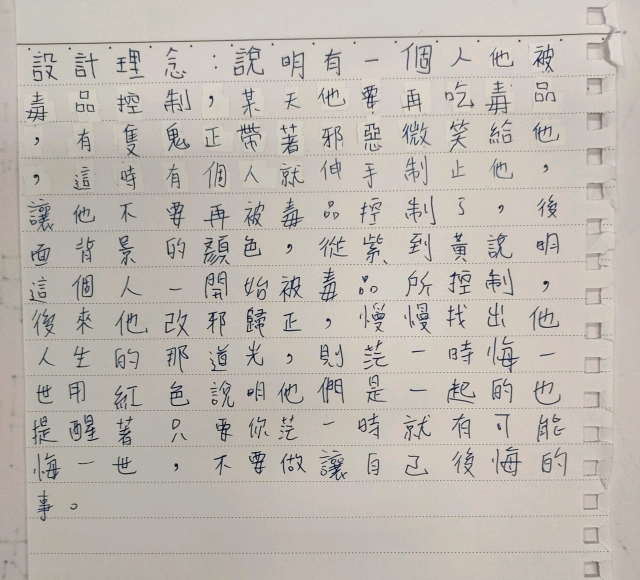 設計理念:說明有一個人他被
毒品控制,某天他要再吃毒品
,有隻鬼正帶著邪惡微笑給他
,這時有個人就伸手制止他,
讓他不要再被毒品控制了,後
面背景的顏色,從紫到黃說明
這個人一開始被毒品所控制,
後來他改邪歸正,慢慢找出他
人生的那道光,則茫一時悔一
世用紅色說明他們是一起的也
提醒著只要你茫一時就有可能
悔一世,不要做讓自己後悔的
事。